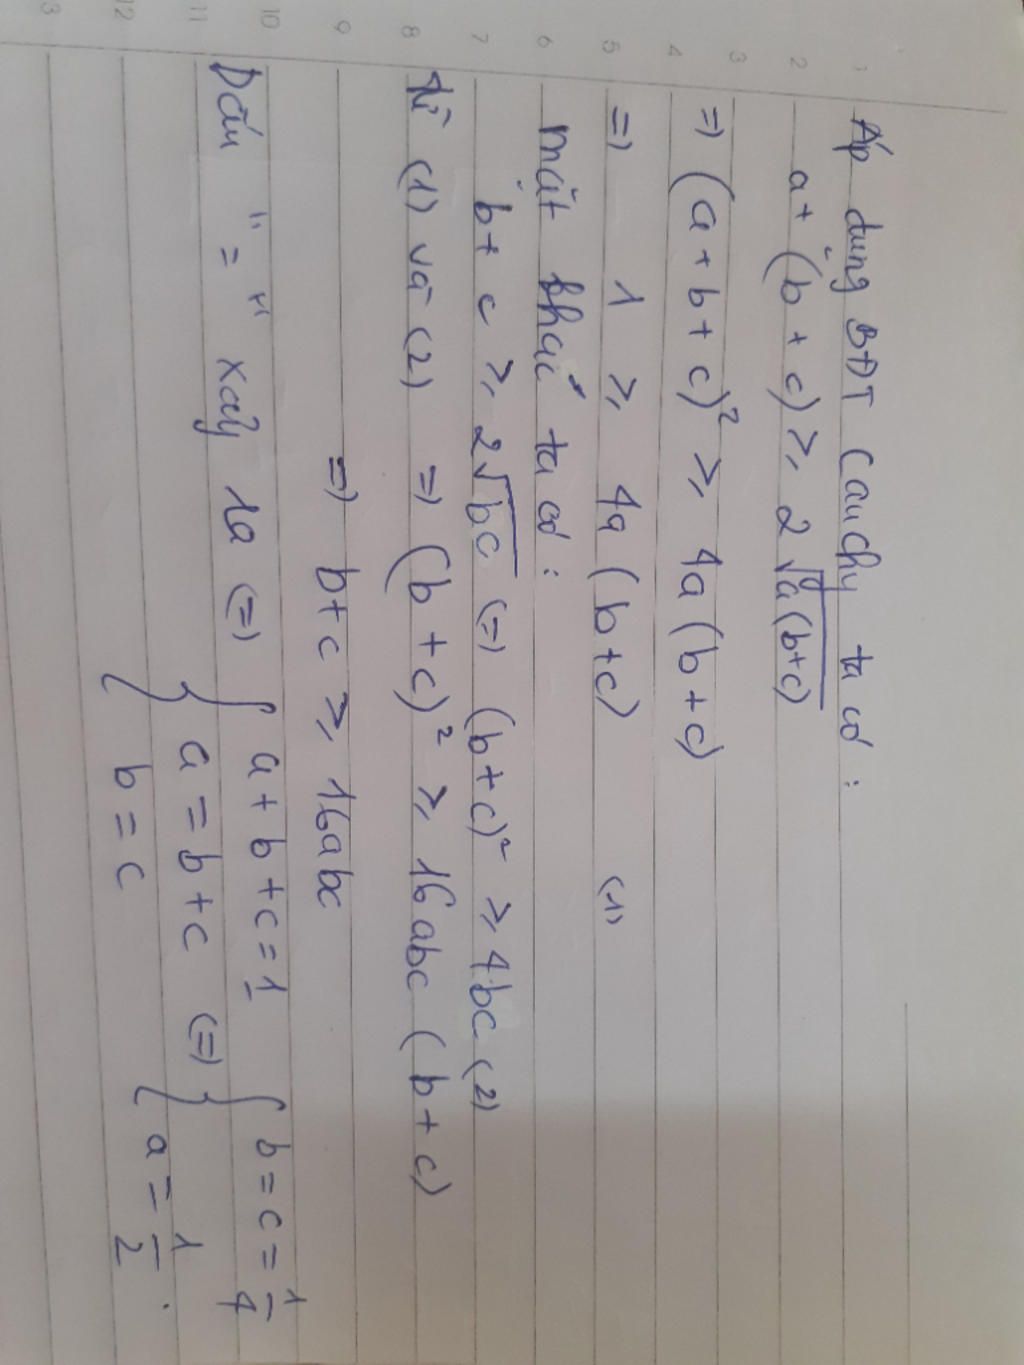 1
2
3
4
5
6
7
8
9
10
11
12
13
Áp dụng BĐT Cauchy ta có :
a + (b + c) ≥ 2√a(b+c)
=> (a + b + c)² ≥ 4a (b + c)
=> 1 ≥ 4a (b+c) (1)
mặt khác ta có :
b + c ≥ 2√bc (=) (b+c)² ≥ 4bc (2)
từ (1) và (2) => (b + c)² ≥ 16abc (b + c)
=> b+c ≥ 16abc
Dấu "=" xảy ra (=) { a + b + c = 1 { b = c = 1/4
a = b + c (=) { a = 1/2 .
{ b = c